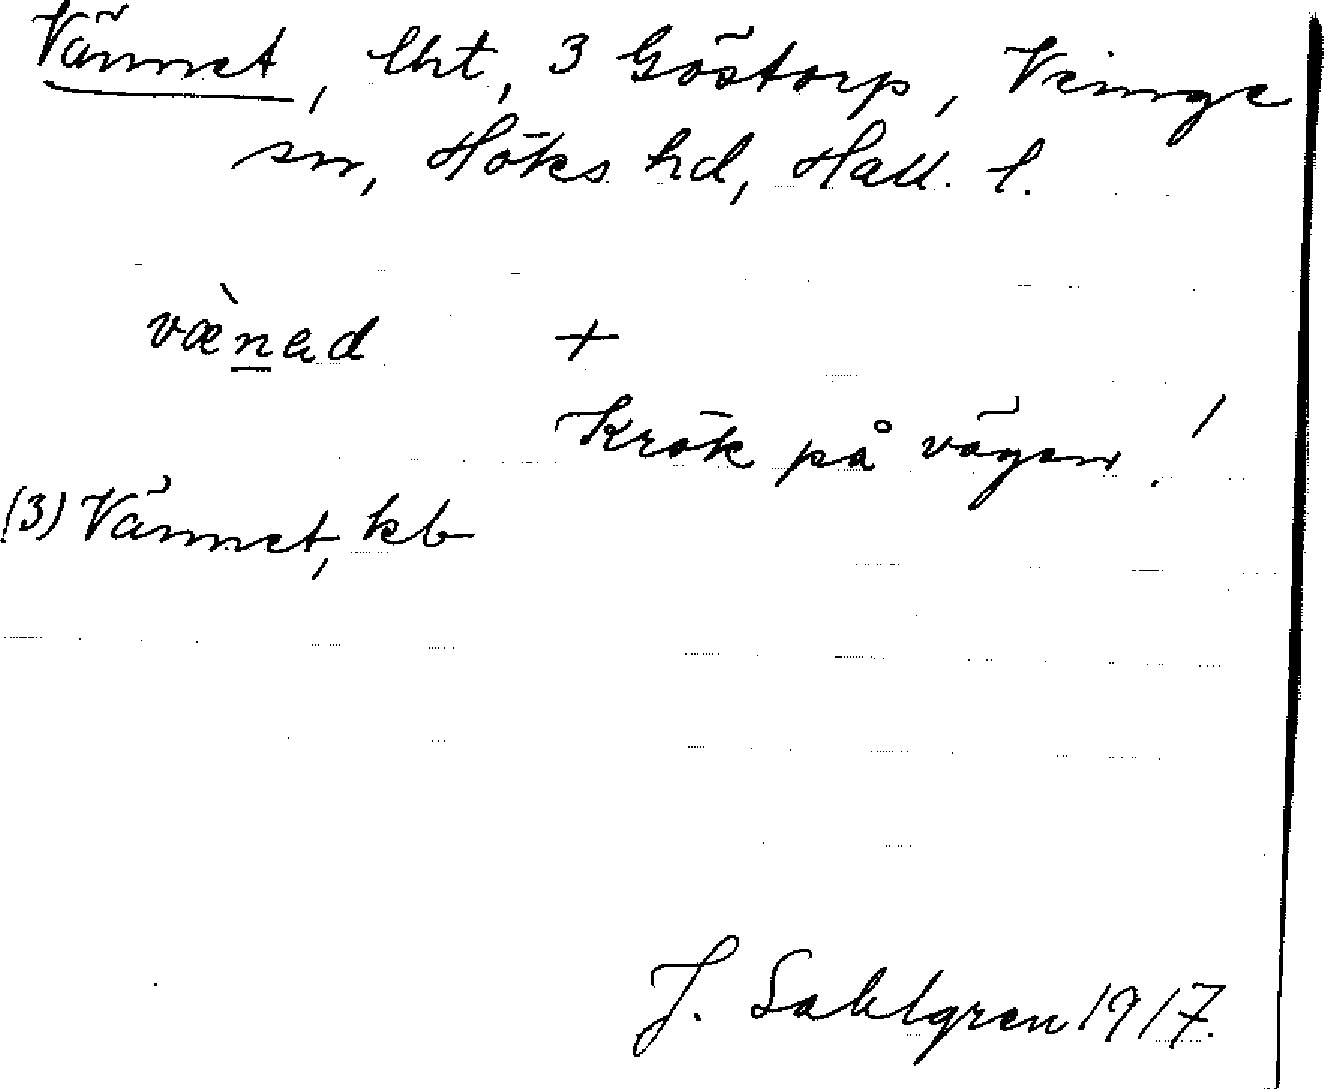 Vännet, lht, 3 Göstorp, Veinge
sn, Höks hd, Hall. l.
vænad +
Krök på vägen! /
(3) Vännet, kb
J. Sahlgren 1917.